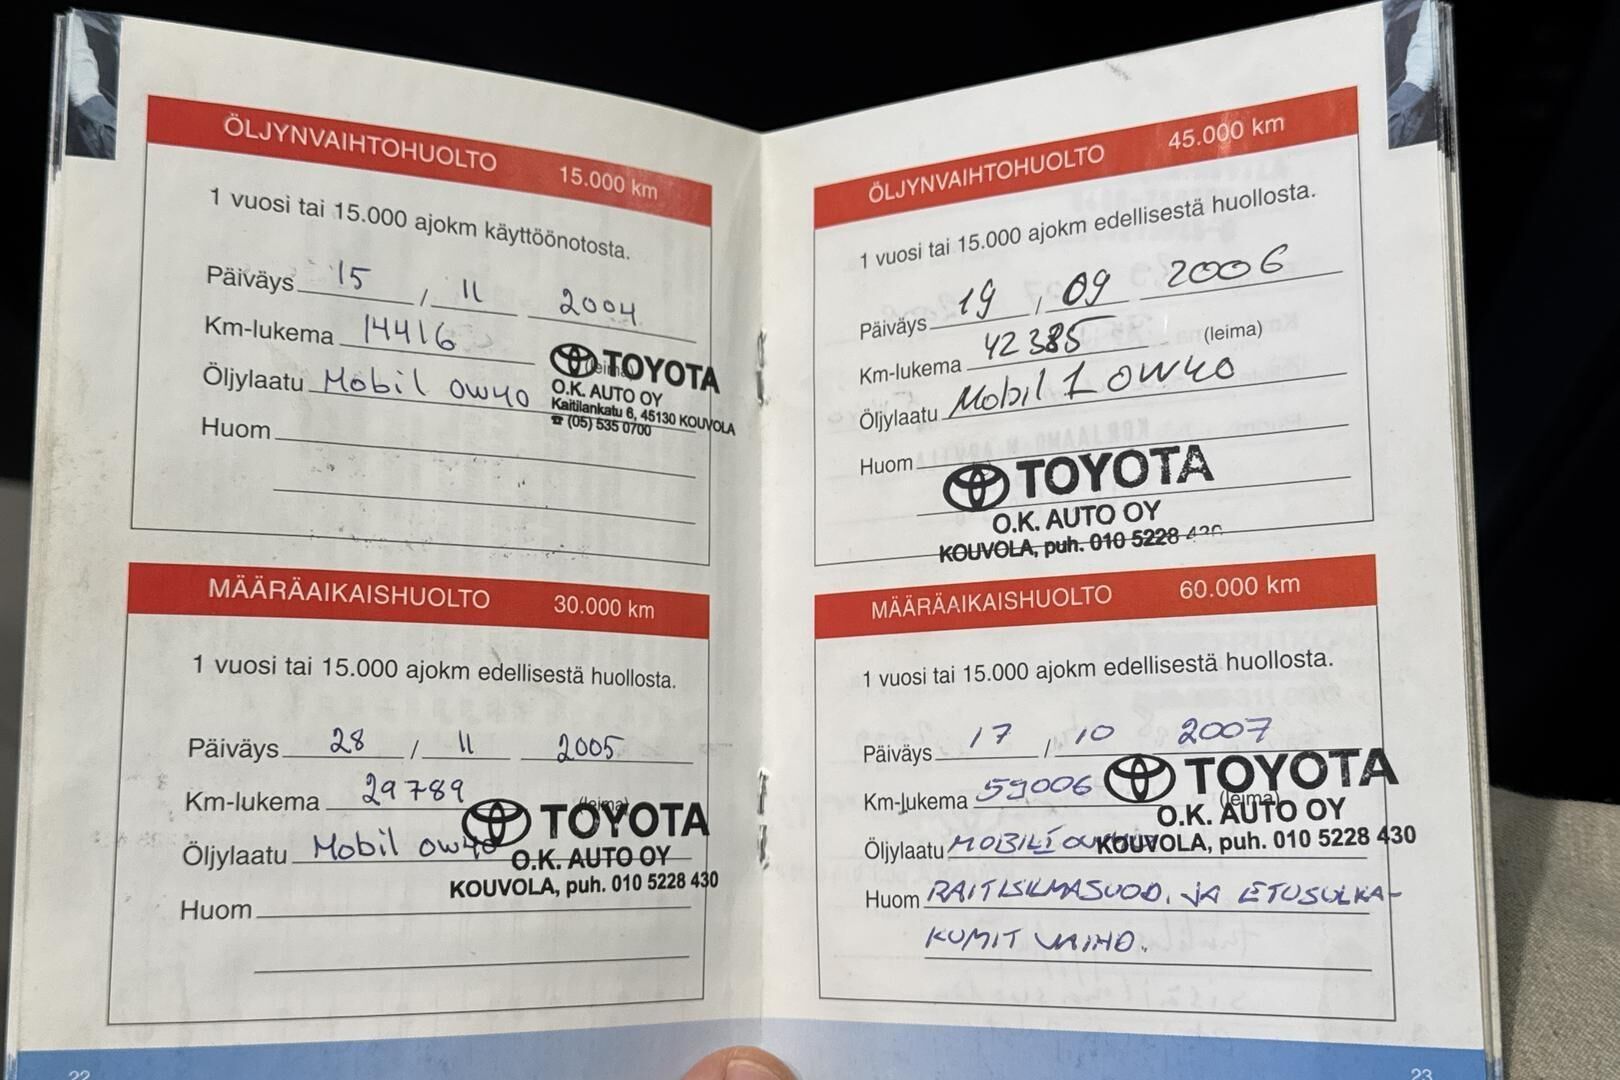 ÖLJYNVAIHTOHUOLTO 15.000 km
1 vuosi tai 15.000 ajokm käyttöönotosta.
Päiväys 15 / 11 2004
Km-lukema 14416
(leima)
TOYOTA
Öljylaatu Mobil 0W40
O.K. AUTO OY
Kaitilankatu 6, 45130 KOUVOLA
☎ (05) 535 0700
Huom
MÄÄRÄAIKAISHUOLTO 30.000 km
1 vuosi tai 15.000 ajokm edellisestä huollosta.
Päiväys 28 / 11 2005
Km-lukema 29789
(leima)
TOYOTA
Öljylaatu Mobil 0W40
O.K. AUTO OY
KOUVOLA, puh. 010 5228 430
Huom
22
ÖLJYNVAIHTOHUOLTO 45.000 km
1 vuosi tai 15.000 ajokm edellisestä huollosta.
Päiväys 19 / 09 2006
Km-lukema 42385 (leima)
Öljylaatu Mobil 1 0W40
Huom
TOYOTA
O.K. AUTO OY
KOUVOLA, puh. 010 5228 430
MÄÄRÄAIKAISHUOLTO 60.000 km
1 vuosi tai 15.000 ajokm edellisestä huollosta.
Päiväys 17 / 10 2007
Km-lukema 59006
TOYOTA
(leima)
O.K. AUTO OY
Öljylaatu MOBIL1
KOUVOLA, puh. 010 5228 430
Huom RAITISILMASUOD. JA ETUSULKA-
KUMIT VAIHD.
23